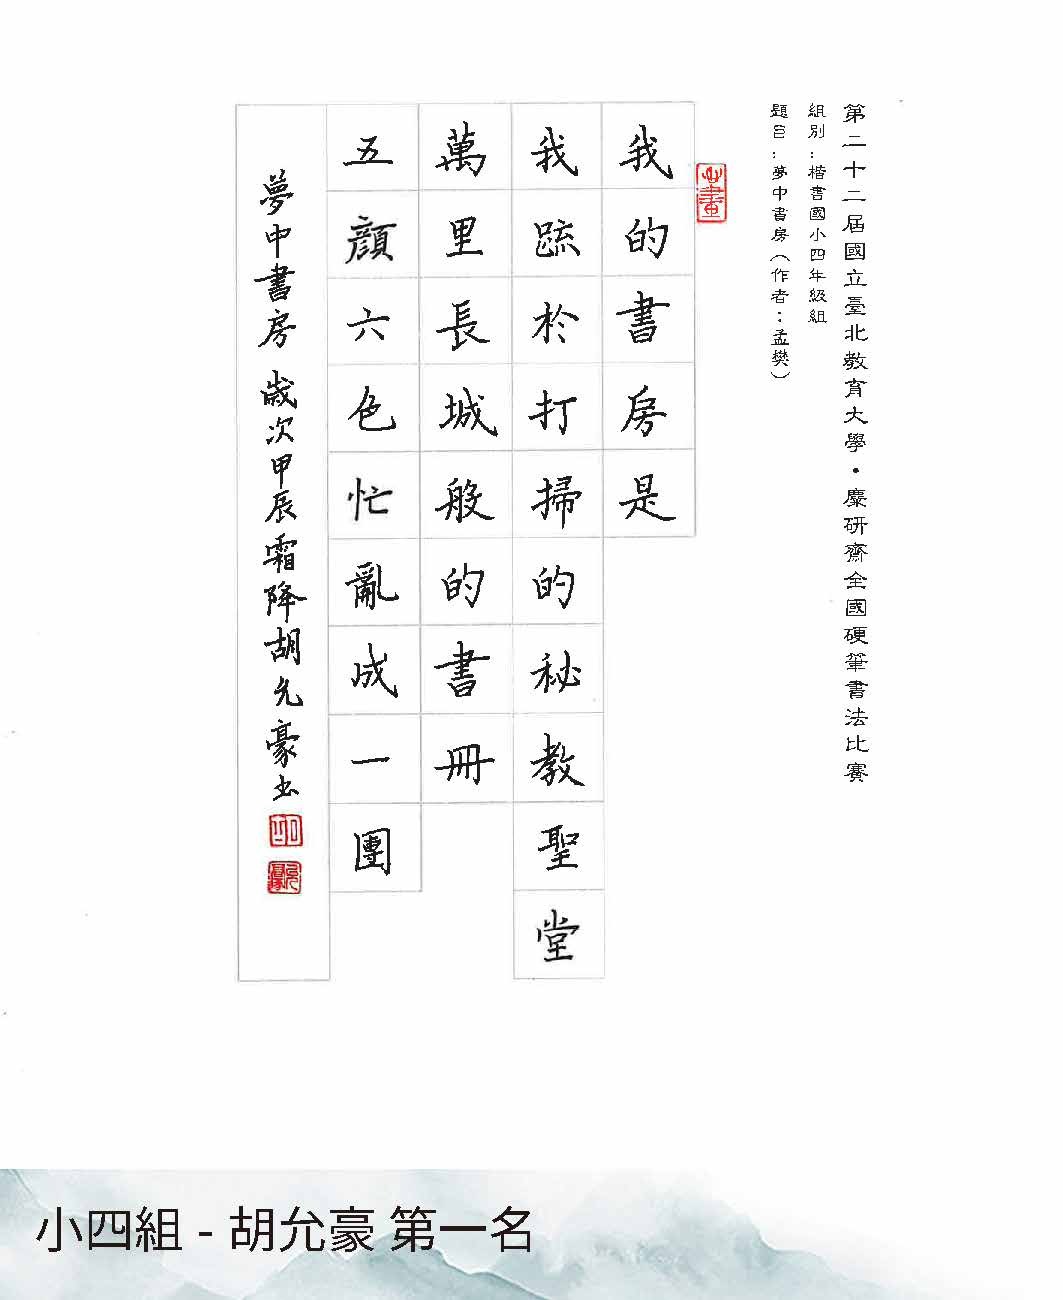 第二十二屆國立臺北教育大學•麋研齋全國硬筆書法比賽
組別：楷書國小四年級組
題目：夢中書房（作者：孟樊）
我的書房是
我疏於打掃的秘教聖堂
萬里長城般的書冊
五顏六色忙亂成一團
夢中書房 歲次甲辰霜降胡允豪书
小四組 - 胡允豪 第一名